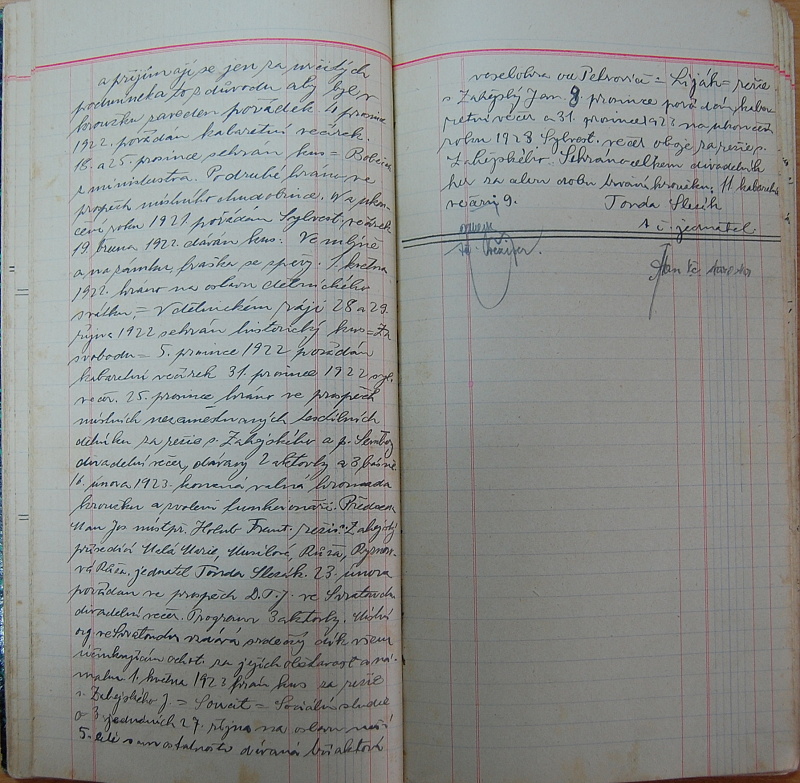 a přijímají se jen za určitých
podmínek a to z důvodu aby byl v
kroužku zaveden pořádek. 4 prosince
1922. pořádán kabaretní večírek.
18. a 25. prosince sehrán kus =
z ministerstva. Podruhé hráno ve
prospěch místního chudobince. Na ukon-
čení roku 1921 pořádán Sylvest. večírek
19 března 1922. dáván kus: Ve mlýně
a na zámku, fraška se zpěvy. 1. května
1922. hráno na oslavu dělnického
svátku, = V dělnickém ráji 28 a 29.
října 1922 sehrán historický kus = Za
svobodu = 5. prosince 1922 pořádán
kabaretní večírek 31. prosince 1922 syl.
večer. 25. prosince hráno ve prospěch
místních nezaměstnaných
dělníků za režie s. Zahejského a p.
divadelní večer, dávány 2 aktovky a 3 básně
16. února 1923. konaná valná hromada
kroužku a zvoleni funkcionáři. Předseda
Man Jos místpř. Holub Frant. režis. Zahejský
přísedící Marie, Musilová Růža,
Růža. jednatel Tonda Slezák. 23. února
pořádán ve prospěch D.T.J. ve Svratouchu
divadelní večer. Program 3 aktovky. Místní
org ve Svratouchu vzdává srdečný dík všem
účinkujícím ochot. za jejich obětavost a ná-
mahu. 1. května 1923 hrán kus za režie
s. Zahejského J. = Soucit = Sociální
o 3. jednáních 27. října na oslavu naší
5. leté samostatnosti dávaná
veselohra od Petroviče = = režie
s Zahejský Jan. 8. prosince pořádán kaba-
retní večer a 31. prosince 1923 na ukončení
roku 1923 Sylvest. večer oboje za režie s.
Zahejského. Sehráno celkem divadelních
her za celou dobu trvání kroužku; 11 kabaret.
večerů 9. Tonda Slezák
t. č. jednatel.